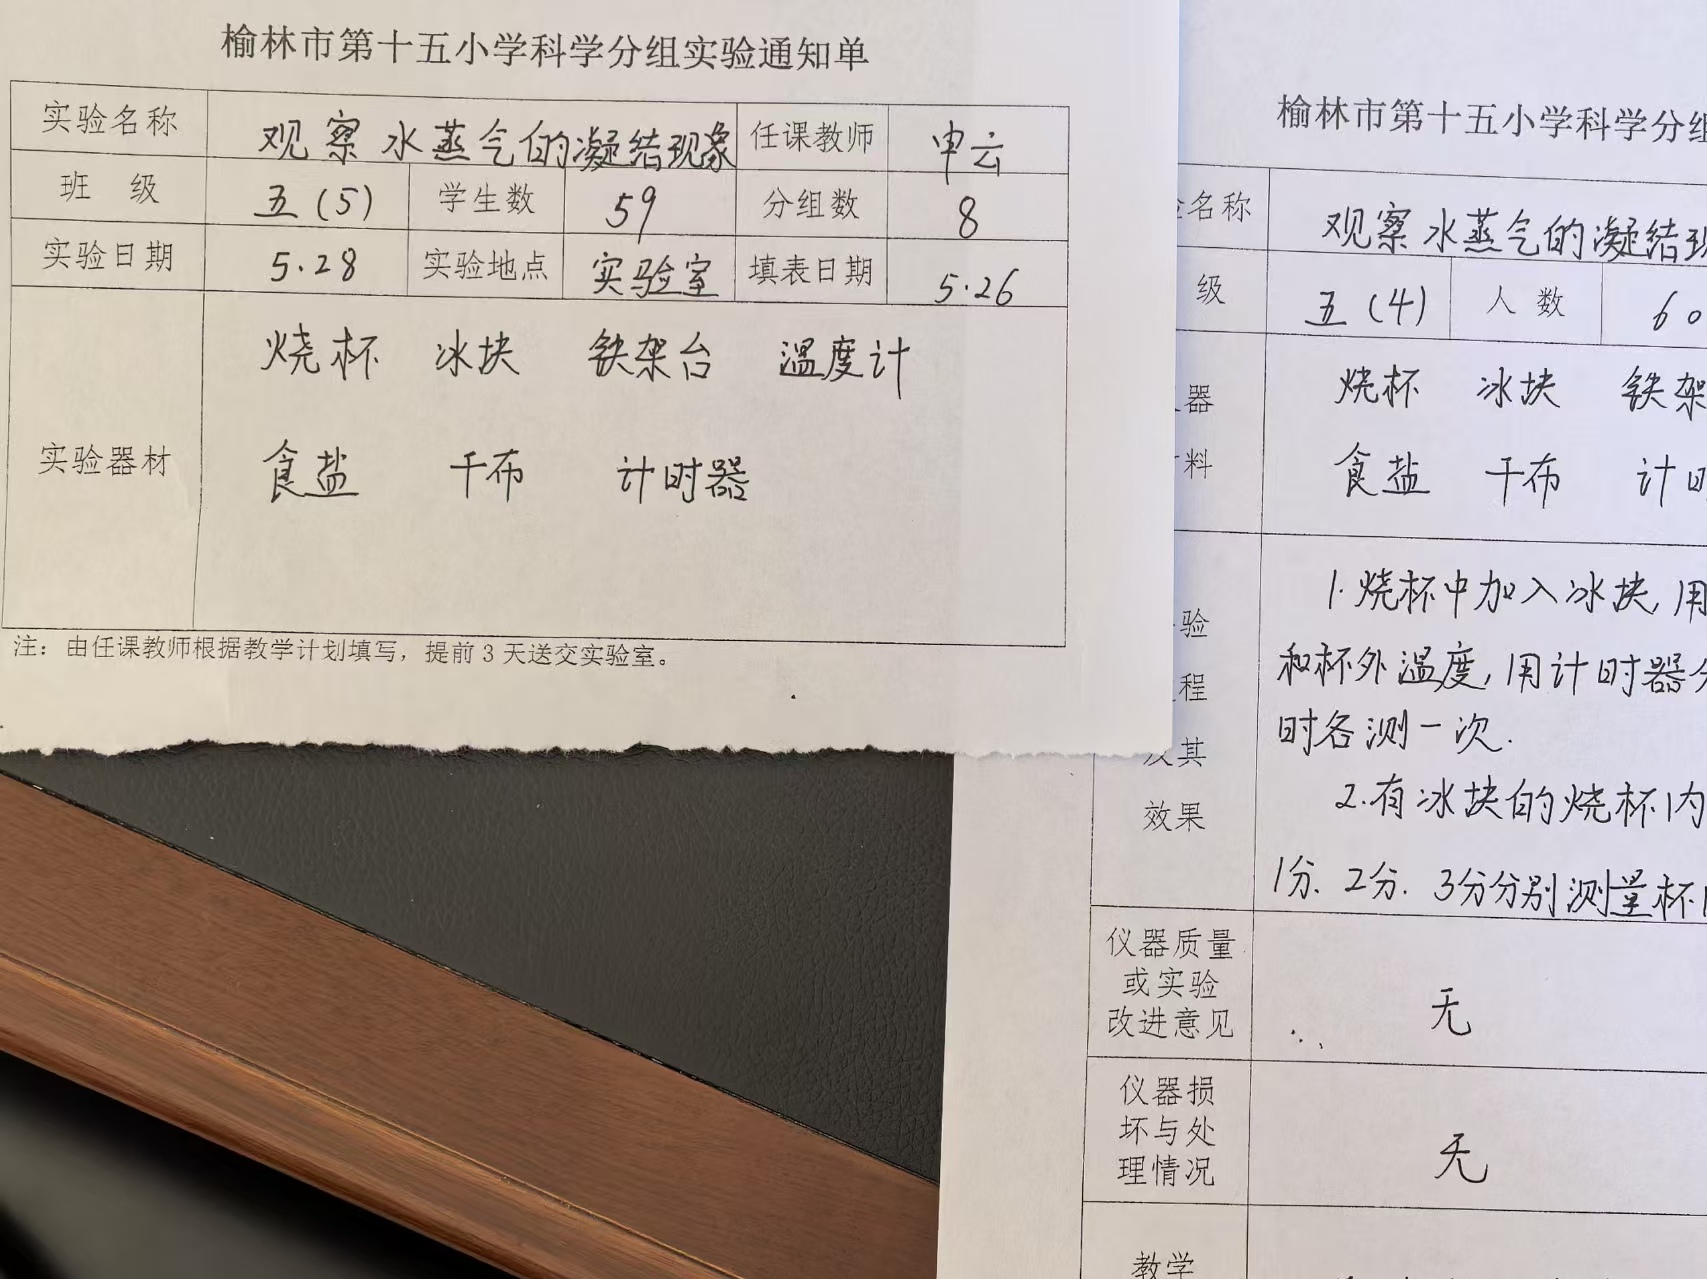 榆林市第十五小学科学分组实验通知单
实验名称 观察水蒸气的凝结现象 任课教师 申云
班 级 五(5) 学生数 59 分组数 8
实验日期 5.28 实验地点 实验室 填表日期 5.26
实验器材 烧杯 冰块 铁架台 温度计
食盐 干布 计时器
注：由任课教师根据教学计划填写，提前3天送交实验室。
榆林市第十五小学科学分组
名称 观察水蒸气的凝结现
级 五(4) 人数 60
器 烧杯 冰块 铁架
料 食盐 干布 计时
验 1.烧杯中加入冰块,用
程 和杯外温度,用计时器
及其 时各测一次.
效果 2.有冰块的烧杯内
1分、2分、3分分别测量杯
仪器质量
或实验
改进意见 无
仪器损
坏与处
理情况 无
教学